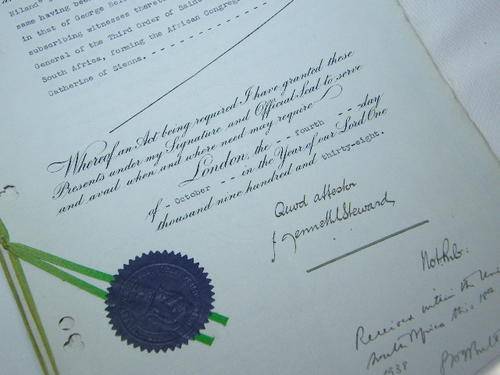 Niland"
same having been
in that of George Be
subscribing witnesses thereto
General of the Third Order of Saint
South Africa, forming the African Congreg
Catherine of Sienna. - - - - - - - -
Whereof an Act being required I have granted these
Presents under my Signature and Official Seal to serve
and avail when and where need may require
London, the - - fourth - - day
of - October - - in the Year of our Lord One
thousand nine hundred and thirty-eight.
Quod attestor
Kenneth Steward
Not. Pub:
Received within the Union
South Africa this 18th
1938